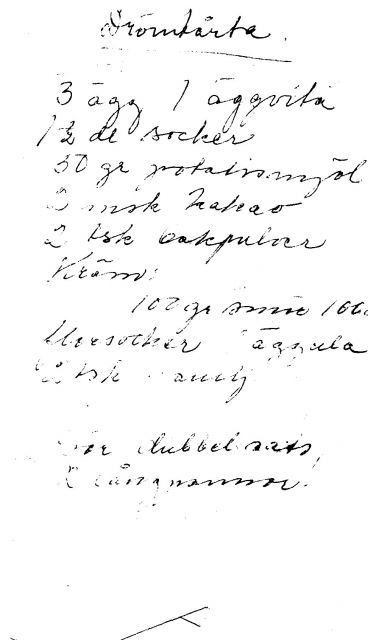 Drömtårta.
3 ägg 1 äggvita
1½ dl socker
50 gr potatismjöl
2 msk kakao
2 tsk bakpulver
Kräm:
100 gr smör 100
florsocker äggula
2 tsk vanilj
för dubbel sats,
2 långpannor.